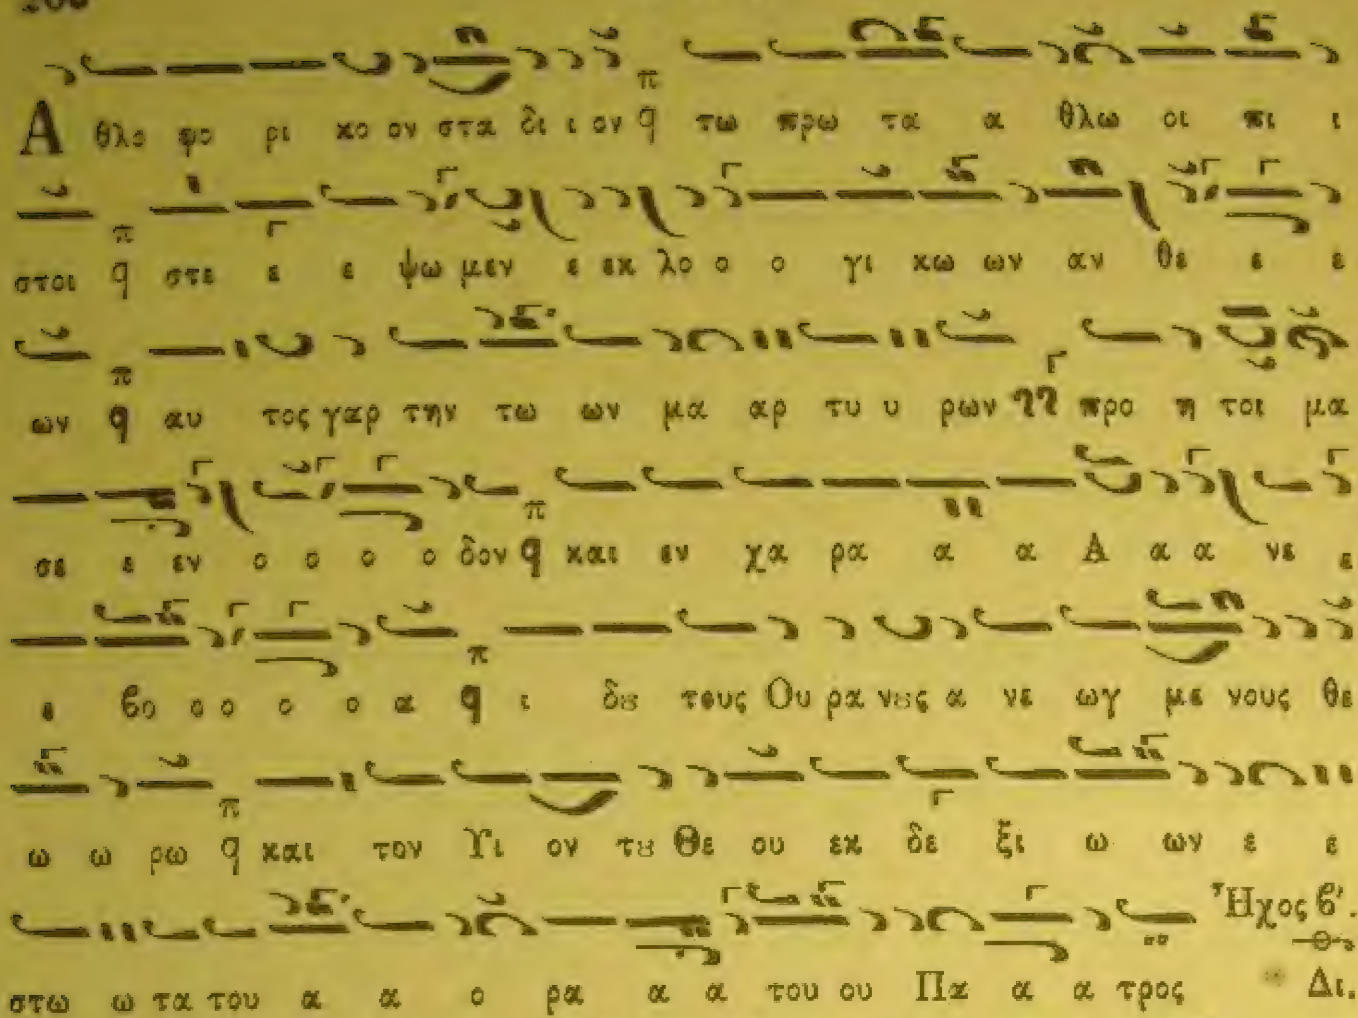 Α θλο φο ρι κο ον στα δι ι ον q π τω πρω τα α θλω οι πι ι
στοι q π στε ε ε ψω μεν ε εκ λο ο ο γι κω ων αν θε ε ε
ων q π αυ τος γαρ την τω ων μα αρ τυ υ ρων προ η τοι μα
σε ε εν ο ο ο ο δον q π και εν χα ρα α α Α α α νε ε
ε βο ο ο ο ο α q π ι δȣ τους Ου ρα νȣς α νε ωγ με νους θε
ω ω ρω q π και τον Υι ον τȣ Θε ου εκ δε ξι ω ων ε ε
στω ω τα του α α ο ρα α α του ου Πα α α τρος Ἦχος β'.
Δι.